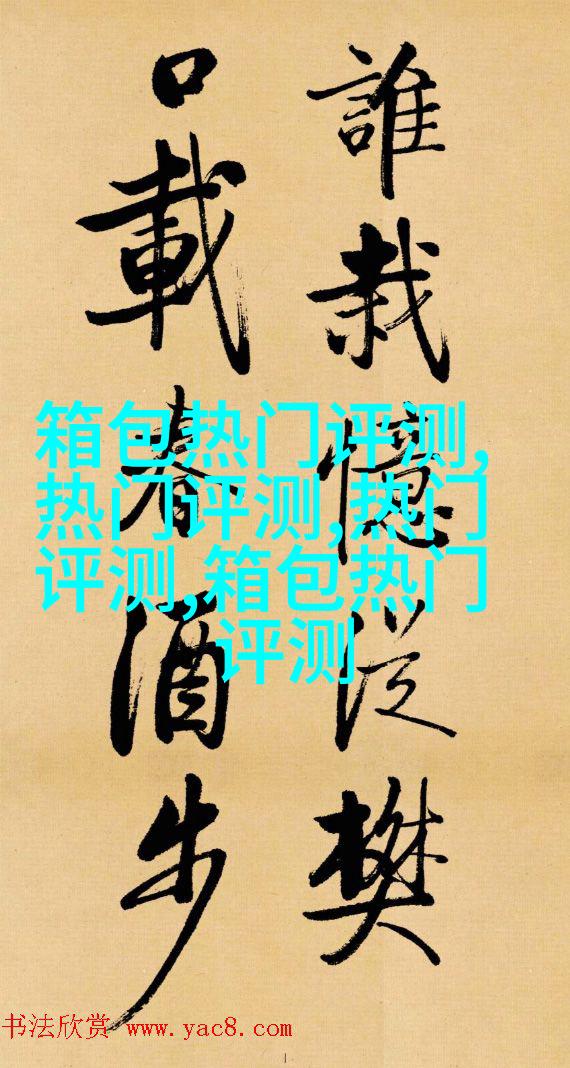 誰栽憶從樊
口載春酒步
箱包热门评测,
热门评测,热门
评测,箱包热门
评测
书法欣赏 www.yac8.com